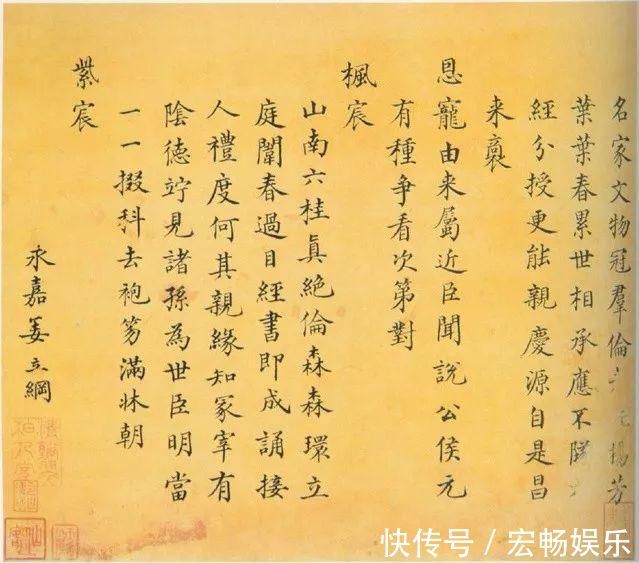 名家文物冠羣倫揚芳
葉葉春累世相承應不隊
經分授更能親慶源自是昌
来
恩寵由来屬近臣聞說公侯元
有種爭看次第對
楓宸
山南六桂眞絕倫森森環立
庭闈春過目經書即成誦接
人禮度何其親緣知冢宰有
陰德竚見諸孫為世臣明當
一一掇科去袍笏滿牀朝
紫宸
永嘉姜立綱
快传号 / 宏畅娱乐